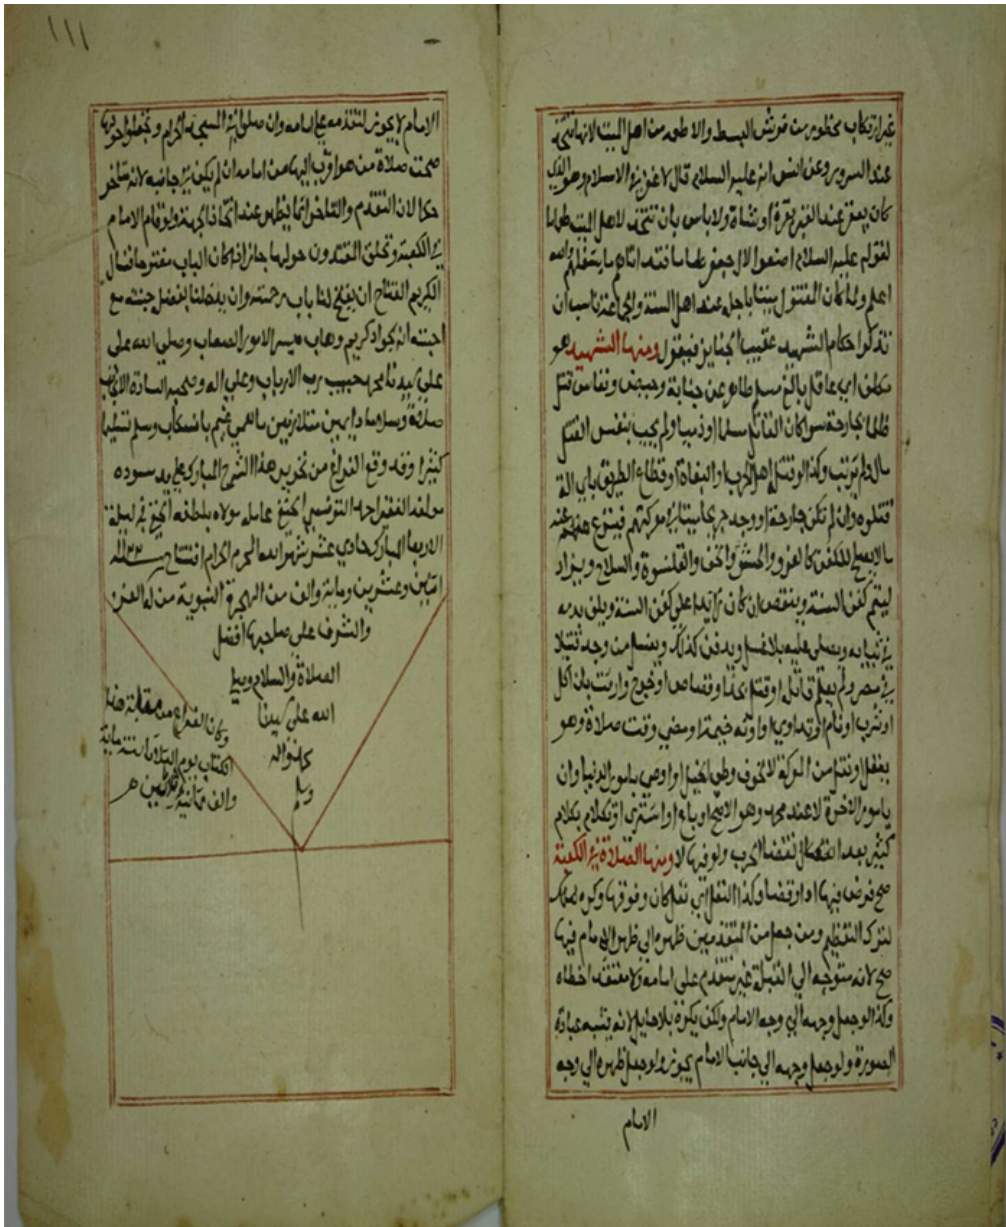 غير ارتكاب محظور من فرش البسط والاطعمة من اهل الميت لانها تتخذ
عند السرور وعن انس انه عليه السلام قال لا عقر في الاسلام وهو الذي
كان يعقر عند القبر بقرة او شاة ولا باس بان تتخذ لاهل الميت طعاما
لقوله عليه السلام اصنعوا لال جعفر طعاما فقد اتاهم ما يشغلهم والله
اعلم ولما كان المقتول ميتا باجله عند اهل السنة والجماعة ناسب ان
تذكر احكام الشهيد عقيب الجنايز فيقول ومنها الشهيد هو
مكلف اي عاقل بالغ مسلم طاهر عن جنابة وحيض ونفاس قتل
ظلما بجارحة سوا كان القاتل مسلما او ذميا ولم يجب بنفس القتل
مال ولم يرتث وكذا لو قتله اهل الحرب او البغاة او قطاع الطريق باي الة
قتلوه وان لم تكن جارحة او وجد جريحا ميتا في معركتهم فينزع عنه
ما لا يصلح للكفن كالفرو والحشو والخف والقلنسوة والسلاح ويزاد
ليتم كفن السنة وينقص ان كان زايدا على كفن السنة ويدفن بدمه
في ثيابه ويصلى عليه بلا غسل ويدفن كذلك ويغسل من وجد قتيلا
في مصر ولم يعلم قاتله او قتل بحد او قصاص او جرح وارتث بان اكل
او شرب او نام او تداوى او اوته خيمة او مضى وقت صلاة وهو
يعقل او نقل من المعركة لا لخوف وطي الخيل او اوصى بامور الدنيا وان
بامور الاخرة لا عند محمد وهو الاصح او باع او اشترى او تكلم بكلام
كثير بعد انقضا الحرب ولو فيها لا ومنها الصلاة في الكعبة
صح فرض فيها ادا وقضا وكذا النفل اي نفل كان وفوقها وكره
لترك التعظيم ومن جعل من المتقدمين ظهره الى ظهر الامام فيها
صح لانه متوجه الى القبلة غير متقدم على امامه ولا معتقد اخطاه
وكذا لو جعل وجهه الى وجه الامام ولكن يكره بلا حايل لانه يشبه عبادة
الصورة ولو جعل وجهه الى جانب الامام يجوز ولو جعل ظهره الى وجه
الامام
١١١
الامام لا يجوز لتقدمه على امامه وان صلى في المسجد الحرام وتحلقوا حولها
صحت صلاة من هو اقرب اليها من امامه ان لم يكن في جانبه لانه متاخر
حكما لان التقدم والتاخر انما يظهر عند اتحاد الجهة ولو قام الامام
في الكعبة وتحلق المقتدون حولها جاز اذا كان الباب مفتوحا نسال
الكريم الفتاح ان يفتح لنا باب رحمته وان يدخلنا بفضل جنته مع
احبته انه جواد كريم وهاب ميسر الامور الصعاب وصلى الله على
على سيدنا محمد حبيب رب الارباب وعلى اله وصحبه السادة الانجاب
صلاة وسلاما دايمين متلازمين ما همي غيم بانسكاب وسلم تسليما
كثيرا وقد وقع الفراغ من تحرير هذا الشرح المبارك على يد مسوده
مولفه الفقير احمد التونسي الحنفي عامله مولاه بلطفه الخفي في ليلة
الاربعا المبارك حادي عشر شهر الله المحرم الحرام افتتاح سنة ١١٢٢
اثنين وعشرين ومائة والف من الهجرة النبوية من له العز
والشرف على صاحبها افضل
الصلاة والسلام وصلى
الله على سيدنا
محمد واله
وسلم
وكان الفراغ من مقابلة هذا
الكتاب يوم الثلاثا سنة ماية
والف وثمانية وثلاثين هـ